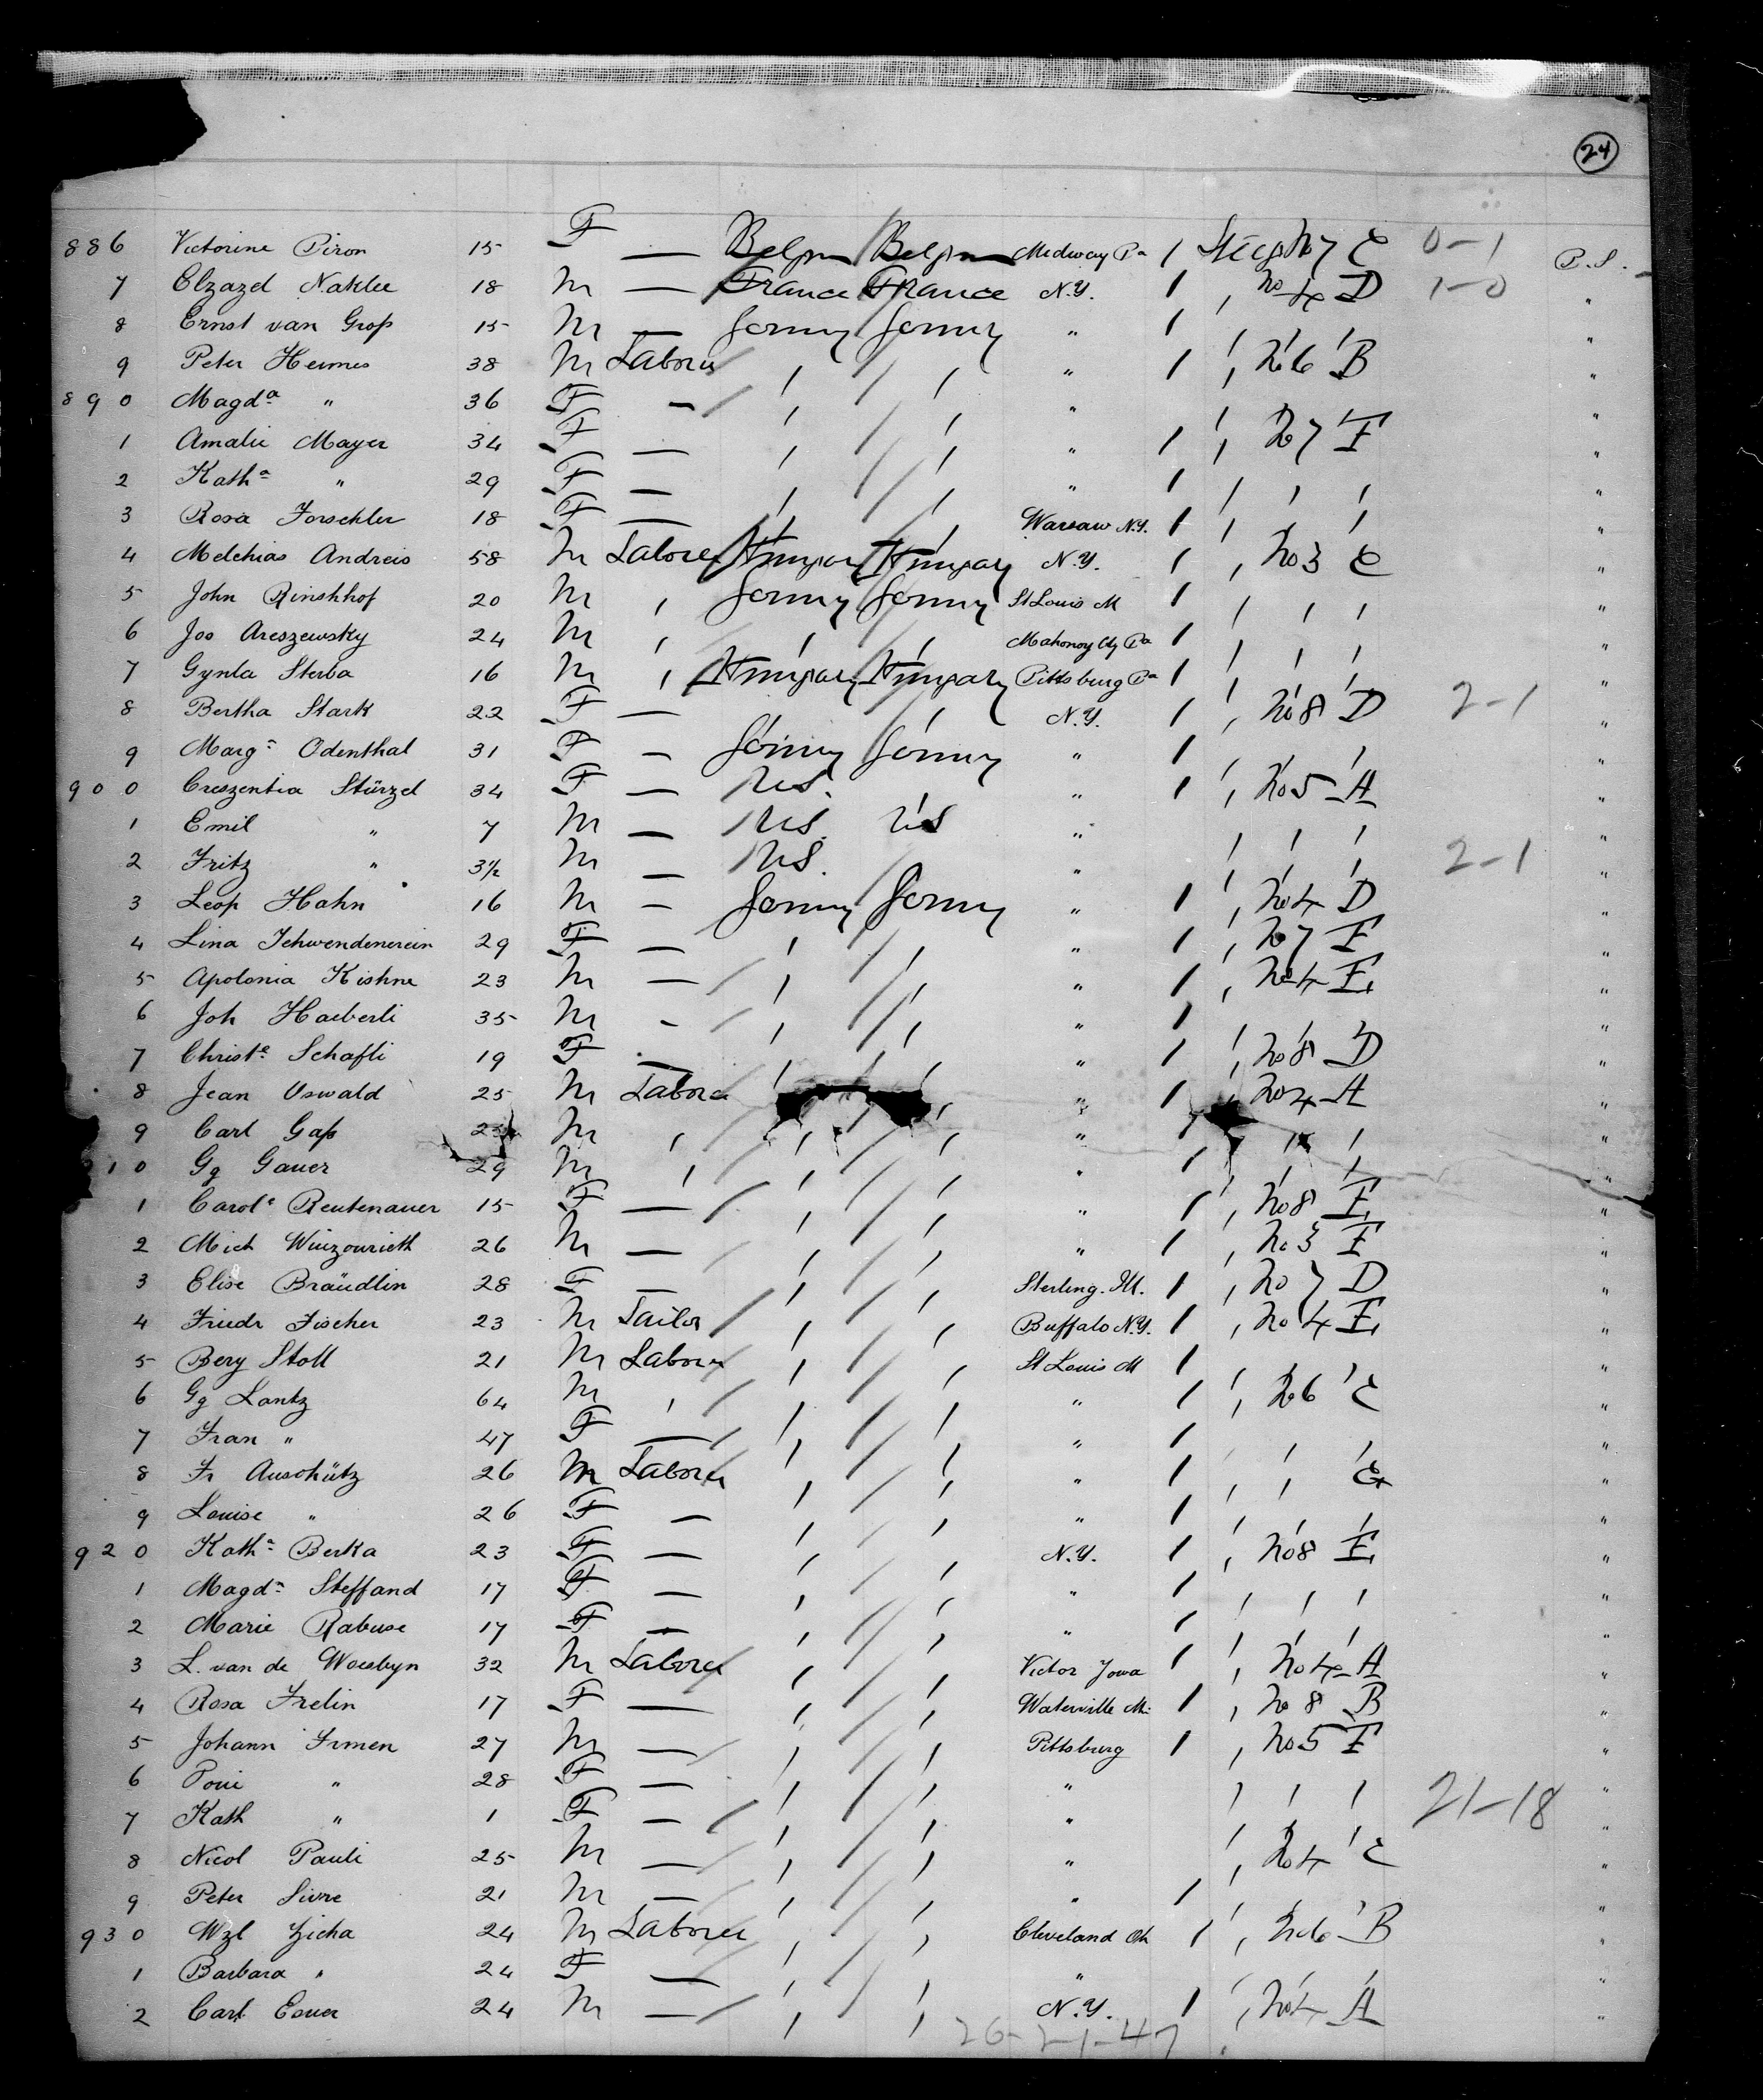 24
886 Victorine Piron 15 F — Belgm Belgm Medway Pa 1 Steeg No 7 C 0-1 P.S.
7 Elzazel Naklee 18 M — France France N.Y. 1 " No 4 D 1-0 "
8 Ernst van Groß 15 M — Germy Germy " 1 "
9 Peter Hermes 38 M Laborer " " " 1 " No 6 B "
890 Magda " 36 F — " " " "
1 Amalie Mayer 34 F — " " " 1 " No 7 F "
2 Katha " 29 F — " " " 1 " " " "
3 Rosa Forschler 18 F — " " Warsaw N.Y. 1 " " " "
4 Melchias Andreis 58 M Laborer Hungary Hungary N.Y. 1 " No 3 C "
5 John Rinshhof 20 M " Germy Germy St Louis M 1 " " " "
6 Jos Areszewsky 24 M " " " Mahonoy Cty Pa 1 " " " "
7 Gynla Sterba 16 M " Hungary Hungary Pittsburg Pa 1 "
8 Bertha Stark 22 F — " " N.Y. 1 " No 8 D 2-1 "
9 Marga Odenthal 31 F — Germy Germy " 1 "
900 Creszentia Stürzel 34 F — U.S. " 1 " No 5 A "
1 Emil " 7 M — U.S. U.S " " " " "
2 Fritz " 3½ M — U.S. " " " " 2-1 "
3 Leop Hahn 16 M — Germy Germy " 1 " No 4 D "
4 Lina Schwendenerein 29 F — " " " 1 " No 7 F "
5 Apolonia Kishne 23 M — " " " 1 " No 4 E "
6 Joh Haeberli 35 M — " " " 1 "
7 Christe Schafli 19 F — " " " 1 " No 8 D "
8 Jean Oswald 25 M Laborer " " 1 No 4 A "
9 Carl Gaß M " " " " 1 " " "
10 Gg Gauer 29 M " " " " 1 " " "
1 Carole Reutenauer 15 F — " " " 1 " No 8 E "
2 Mich Winzourieth 26 M — " " " 1 " No 3 F "
3 Elise Bräudlin 28 F — " " Sterling. Ill. 1 " No 7 D "
4 Friedr Fischer 23 M Tailor " " Buffalo N.Y. 1 " No 4 E "
5 Bery Stoll 21 M Laborer " " St Louis M 1 "
6 Gg Lantz 64 M " " " " 1 " No 6 C "
7 Fran " 47 F — " " " 1 "
8 Fr Auschütz 26 M Laborer " " " 1 " " E "
9 Louise " 26 F — " " " 1 " " " "
920 Katha Berka 23 F — " " N.Y. 1 " No 8 E "
1 Magda Steffand 17 F — " " " 1 " " " "
2 Marie Rabuse 17 F — " " " 1 " " " "
3 L. van de Woesbyn 32 M Laborer " " Victor Iowa 1 " No 4 A "
4 Rosa Frelin 17 F — " " Waterville 1 " No 8 B "
5 Johann Irmen 27 M — " " Pittsburg 1 " No 5 F "
6 28 F — " " " " " " "
7 Kath " 1 F — " " " 21-18 "
8 Nicol Pauli 25 M — " " " " No 4 C "
9 Peter Sivre 21 M — " " " 1 "
930 Wzl Zicha 24 M Laborer " " Cleveland Oh 1 " No 6 B "
1 Barbara " 24 F — " " " "
2 Carl Esuer 24 M — " " N.Y. 1 " No 4 A "
26-21-47